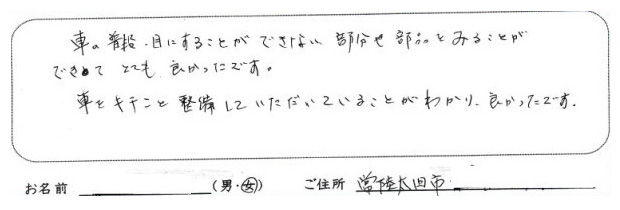 車の普段、目にすることができない部分や部品をみることが
できてとても良かったです。
車をキチンと整備していただいていることがわかり、良かったです。
お名前 (男・女) ご住所 常陸太田市